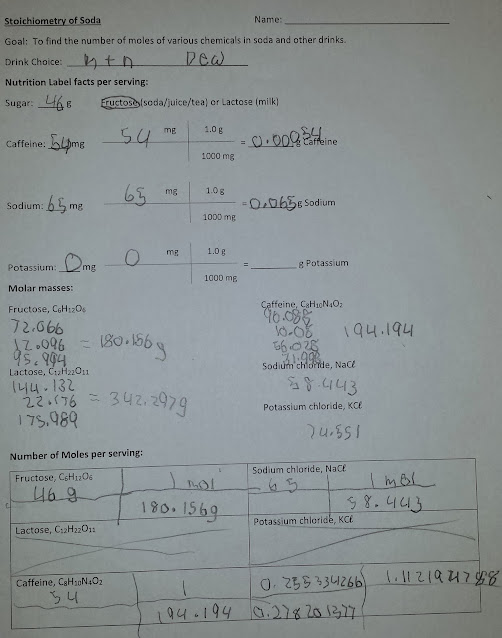 Stoichiometry of Soda Name:
Goal: To find the number of moles of various chemicals in soda and other drinks.
Drink Choice: Mtn Dew
Nutrition Label facts per serving:
Sugar: 46 g Fructose (soda/juice/tea) or Lactose (milk)
54 mg 1.0 g
Caffeine: 54 mg = 0.054 g Caffeine
1000 mg
65 mg 1.0 g
Sodium: 65 mg = 0.065 g Sodium
1000 mg
0 mg 1.0 g
Potassium: 0 mg = g Potassium
1000 mg
Molar masses:
Fructose, C₆H₁₂O₆ Caffeine, C₈H₁₀N₄O₂
72.066 96.088
12.096 = 180.156 g 10.08 194.194
95.994 56.028
31.998
Lactose, C₁₂H₂₂O₁₁ Sodium chloride, NaCl
144.132 58.443
22.176 = 342.297 g
175.989 Potassium chloride, KCl
74.551
Number of Moles per serving:
Fructose, C₆H₁₂O₆ 1 mol Sodium chloride, NaCl 1 mol
46 g 65
180.156 g 58.443
Lactose, C₁₂H₂₂O₁₁ Potassium chloride, KCl
Caffeine, C₈H₁₀N₄O₂ 1 0.255334266
54
194.194 0.278201377